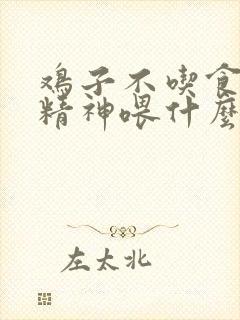 鸡子不喫食
精神喂什麼
左太北